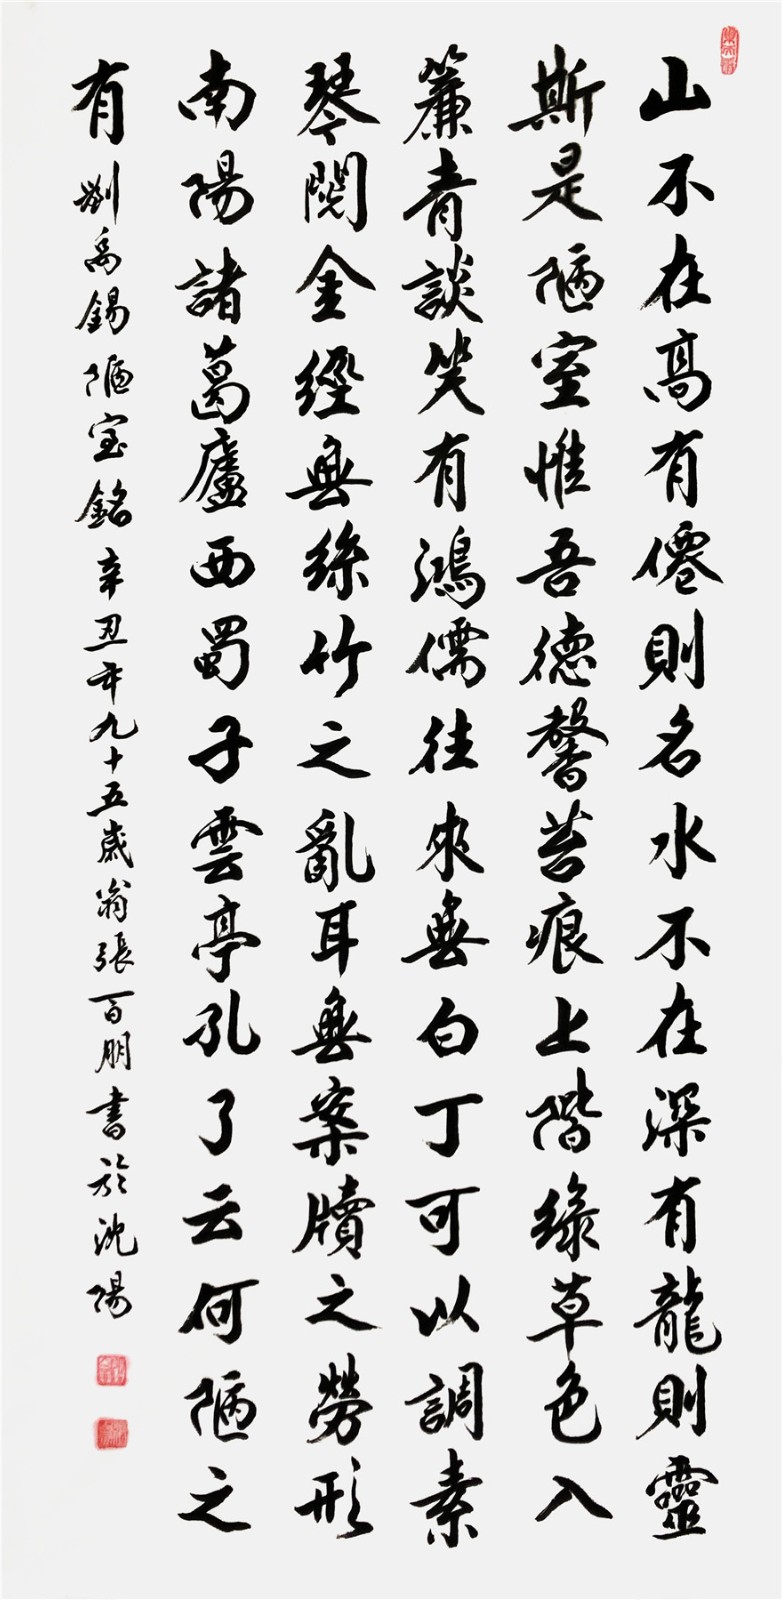 山不在高有僊則名水不在深有龍則靈
斯是陋室惟吾德馨苔痕上階綠草色入
簾青談笑有鴻儒往來無白丁可以調素
琴閱金經無絲竹之亂耳無案牘之勞形
南陽諸葛廬西蜀子雲亭孔了云何陋之
有 劉禹錫陋室銘辛丑年九十五歲翁張百朋書於沈陽